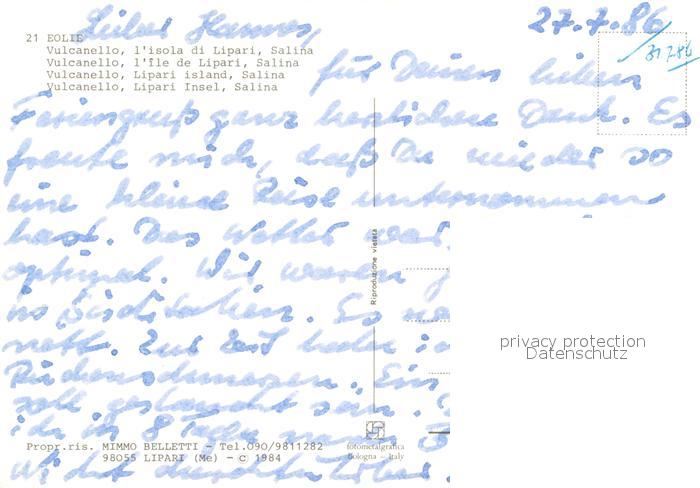 27.7.86
Lieber Hannes,
31.7.86
21 EOLIE
Vulcanello, l'isola di Lipari, Salina
Vulcanello, l'île de Lipari, Salina
Vulcanello, Lipari island, Salina
Vulcanello, Lipari Insel, Salina
für Deinen lieben
Feriengruß ganz herzlichen Dank. Es
freute mich, daß Du wieder so
eine kleine Reise unternommen
hast. Das Wetter war
optimal. Wir waren
Es
nett. Zur Zeit habe
Rückenschmerzen. Ein
soll sein.
8 Tage
Riproduzione vietata
privacy protection
Datenschutz
Propr.ris. MIMMO BELLETTI - Tel.090/9811282
98055 LIPARI (Me) - © 1984
fotometalgrafica
Bologna - Italy